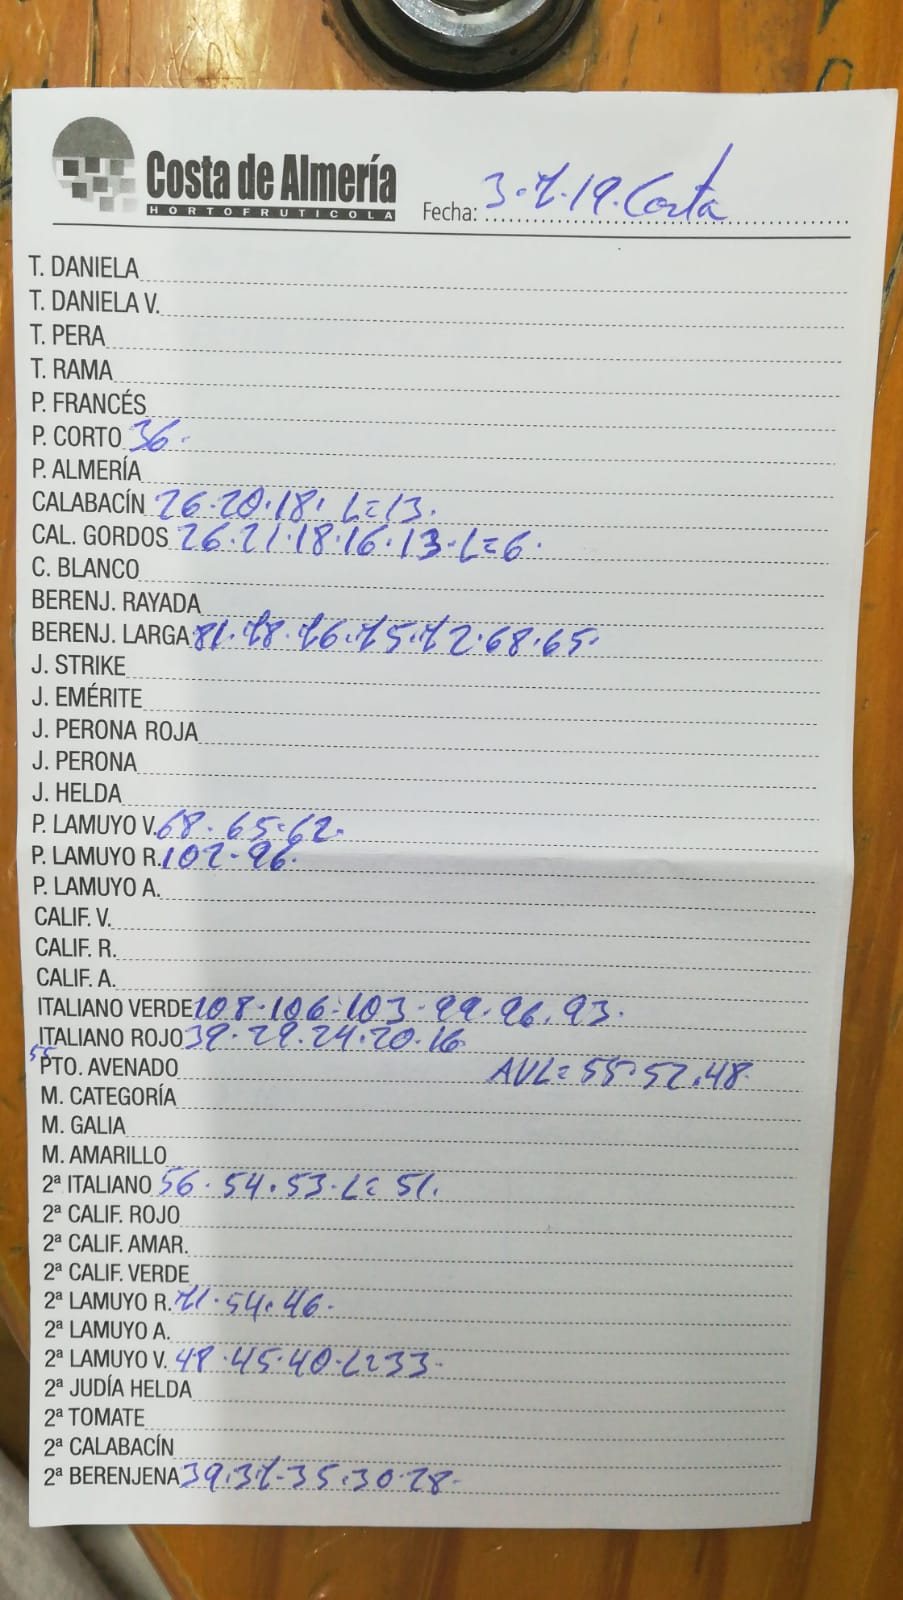 Costa de Almería
HORTOFRUTICOLA
Fecha: 3.7.19. Costa
T. DANIELA
T. DANIELA V.
T. PERA
T. RAMA
P. FRANCÉS
P. CORTO 36.
P. ALMERÍA
CALABACÍN 26.20.18. L=13.
CAL. GORDOS 26.21.18.16.13.L=6.
C. BLANCO
BERENJ. RAYADA
BERENJ. LARGA 81.78.76.75.72.68.65.
J. STRIKE
J. EMÉRITE
J. PERONA ROJA
J. PERONA
J. HELDA
P. LAMUYO V. 68.65.62.
P. LAMUYO R. 102.96.
P. LAMUYO A.
CALIF. V.
CALIF. R.
CALIF. A.
ITALIANO VERDE 108.106.103.99.96.93.
ITALIANO ROJO 39.29.24.20.16.
55
PTO. AVENADO AVL=55.52.48.
M. CATEGORÍA
M. GALIA
M. AMARILLO
2ª ITALIANO 56.54.53.L=51.
2ª CALIF. ROJO
2ª CALIF. AMAR.
2ª CALIF. VERDE
2ª LAMUYO R. 71.54.46.
2ª LAMUYO A.
2ª LAMUYO V. 48.45.40.L=33.
2ª JUDÍA HELDA
2ª TOMATE
2ª CALABACÍN
2ª BERENJENA 39.37.35.30.28.